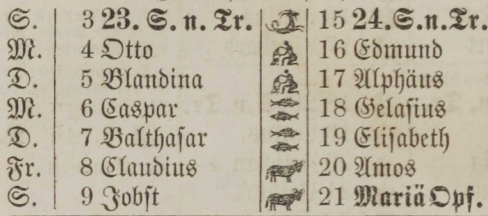 S. 3 23. S. n. Tr. 15 24. S. n. Tr.
M. 4 Otto 16 Edmund
D. 5 Blandina 17 Alphäus
M. 6 Caspar 18 Gelasius
D. 7 Balthasar 19 Elisabeth
Fr. 8 Claudius 20 Amos
S. 9 Jobst 21 Mariä Opf.